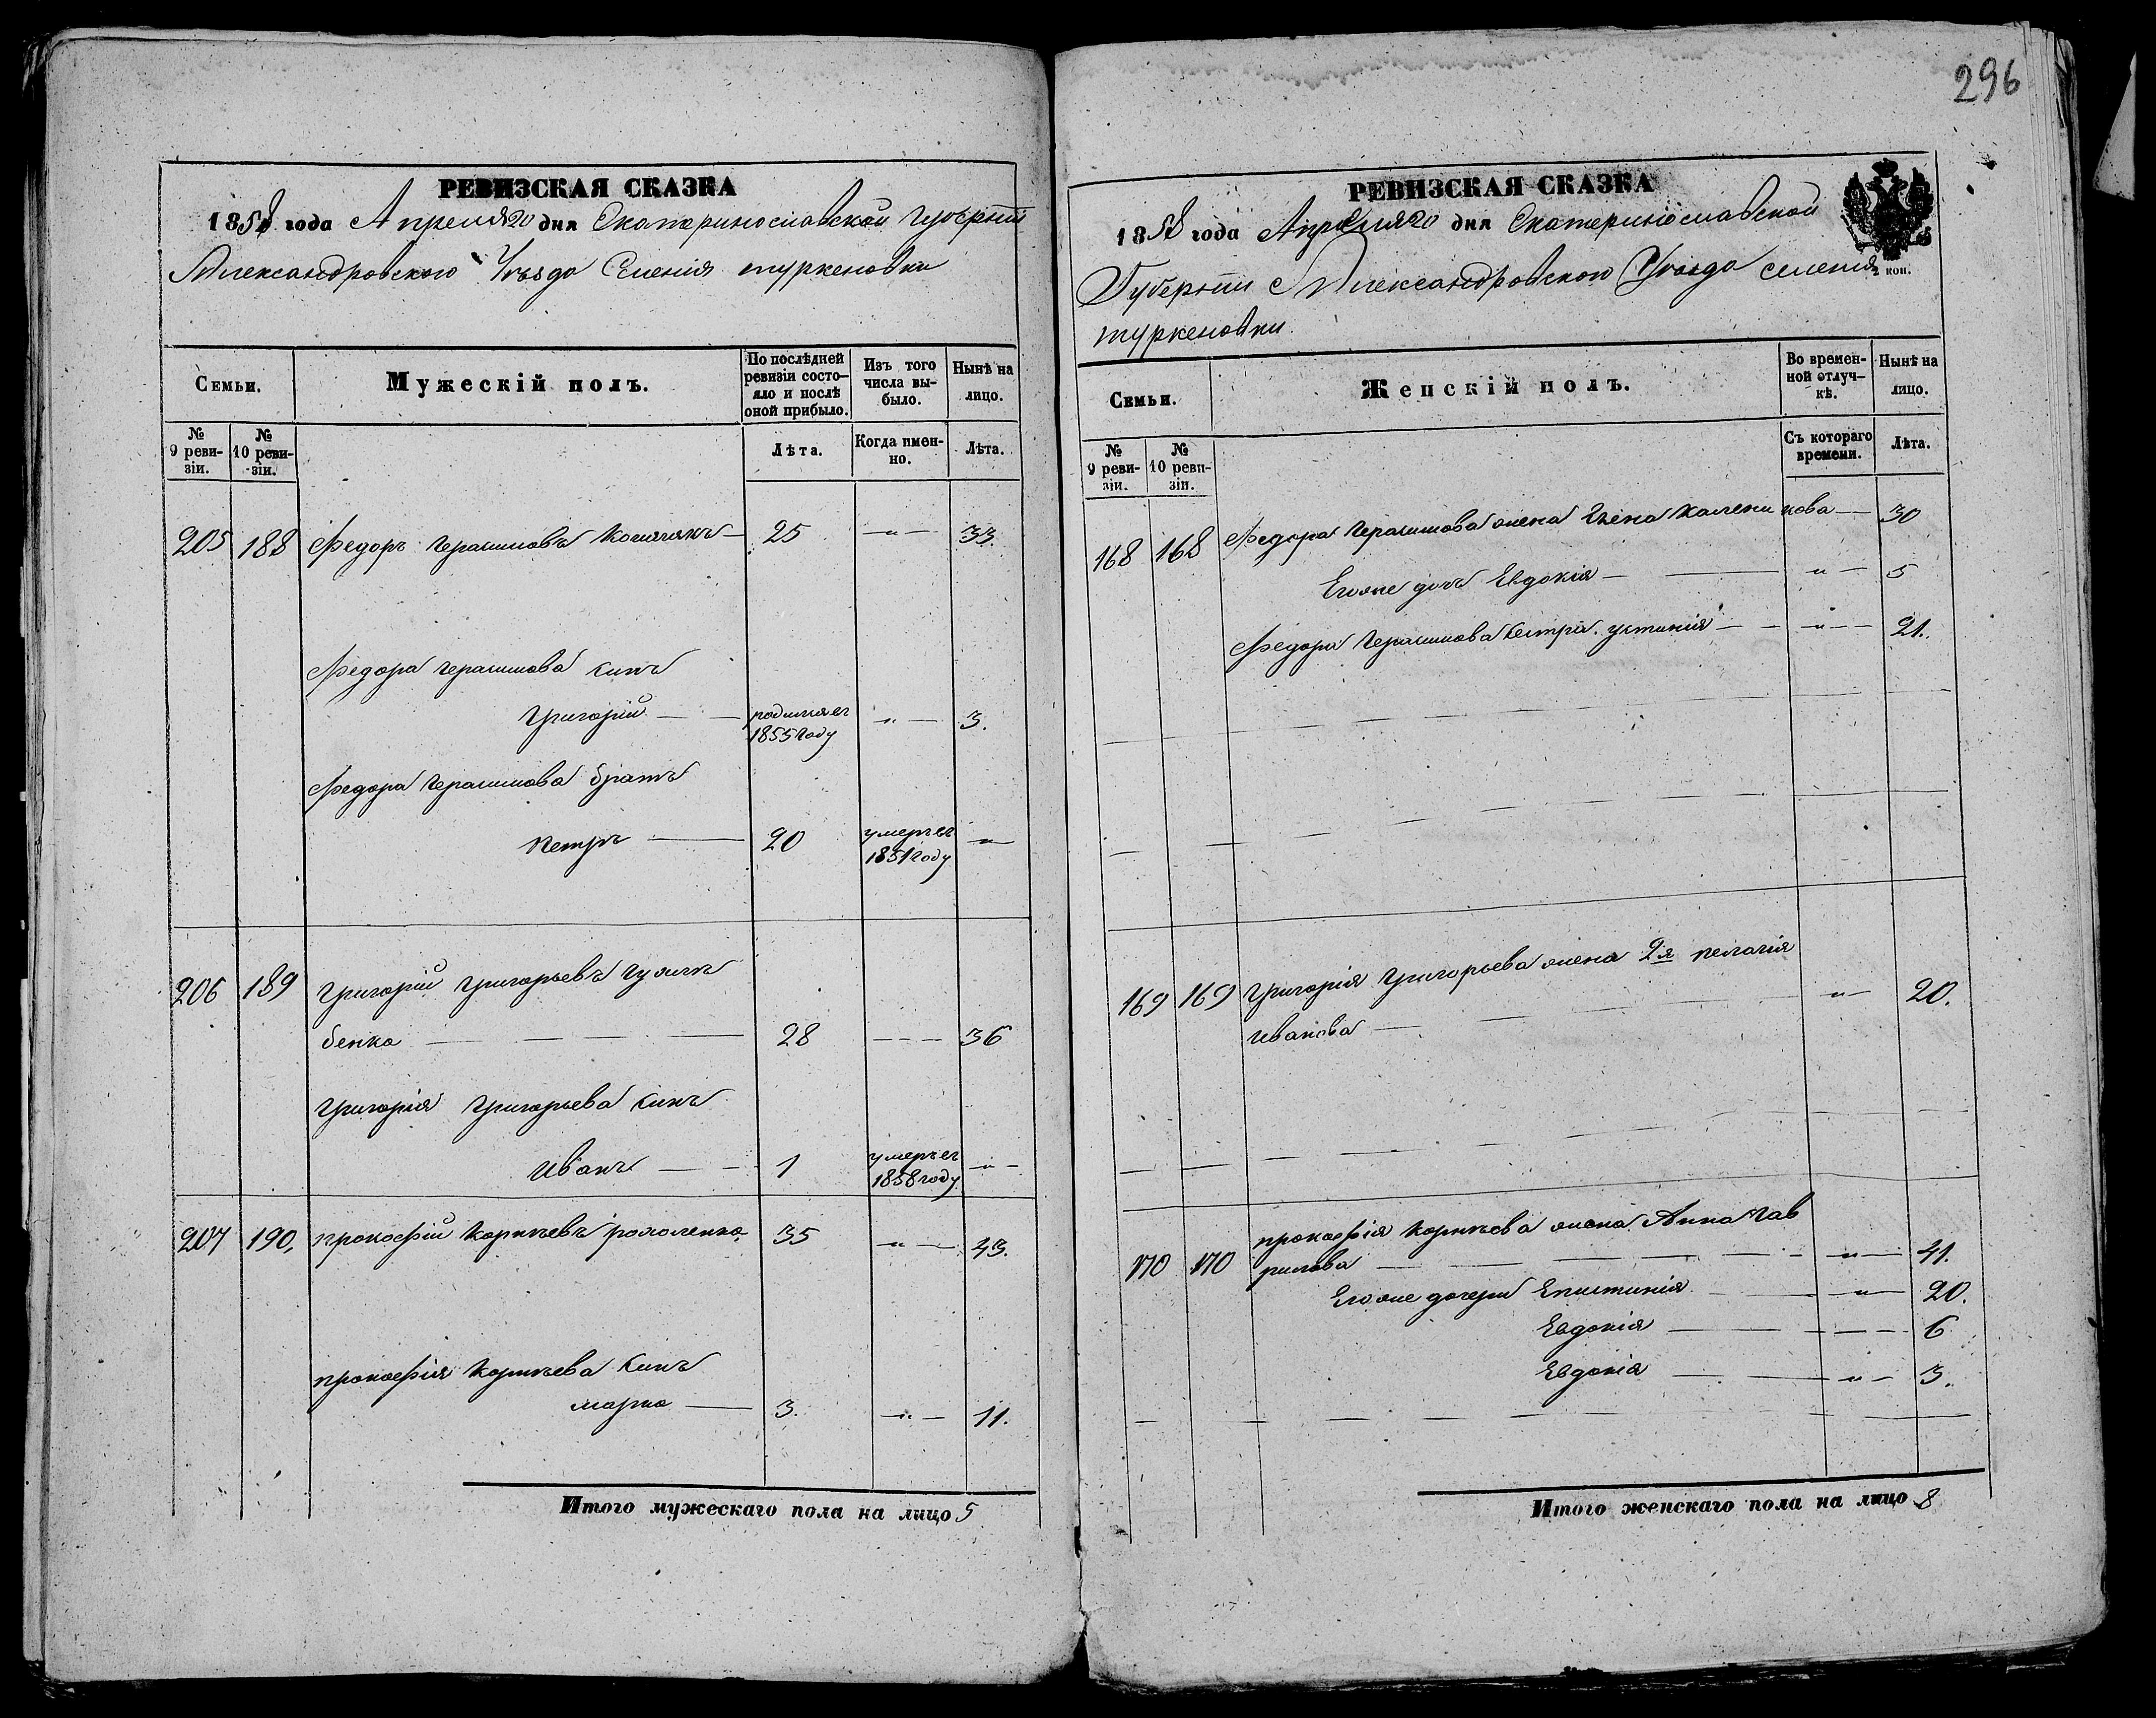 296
РЕВИЗСКАЯ СКАЗКА
1858 года Апреля 20 дня Екатеринославской Губерніи
Александровского Уѣзда Селенія туркеновки
Семьи.
Мужескій полъ.
По послѣдней ревизіи состояло и послѣ оной прибыло.
Изъ того числа выбыло.
Нынѣ на лицо.
№ 9 ревизіи.
№ 10 ревизіи.
Лѣта.
Когда именно.
Лѣта.
205 188 Федоръ Герасимовъ — 25 —"— 33.
Федора Герасимова синъ
Григорій — — родился въ 1855 году " — 3.
Федора Герасимова братъ
петръ — 20 умеръ въ 1851 году —"—
206 189 Григорій Григорьевъ
бенко — — — — 28 — — — 36
Григорія Григорьева синъ
Иванъ — — 1 умеръ въ 1858 году —"—
207 190, прокофій Корнѣевъ 35 —"— 43.
прокофія Корнѣева синъ
марко — 3. —"— 11.
Итого мужескаго пола на лицо 5
РЕВИЗСКАЯ СКАЗКА
1858 года Апреля 20 дня Екатеринославской
Губерніи Александровского Уѣзда селенія
туркеновки.
коп.
Семьи.
Женскій полъ.
Во временной отлучкѣ.
Нынѣ на лицо.
№ 9 ревизіи.
№ 10 ревизіи.
Съ котораго времени.
Лѣта.
168 168 Федора Герасимова жена — 30
Егоже дочь Евдокія — — " — 5
Федора Герасимова сестра устинія — — " — 21.
169 169 Григорія Григорьева жена 2я пелагія
Иванова — — — — " — 20.
170 170 прокофія Корнѣева жена Анна Гав
рилова — — — — " — 41.
Егоже дочери Епистинія — — " — 20.
Евдокія — — — — 6
Евдокія — — — " — 3.
Итого женскаго пола на лицо 8